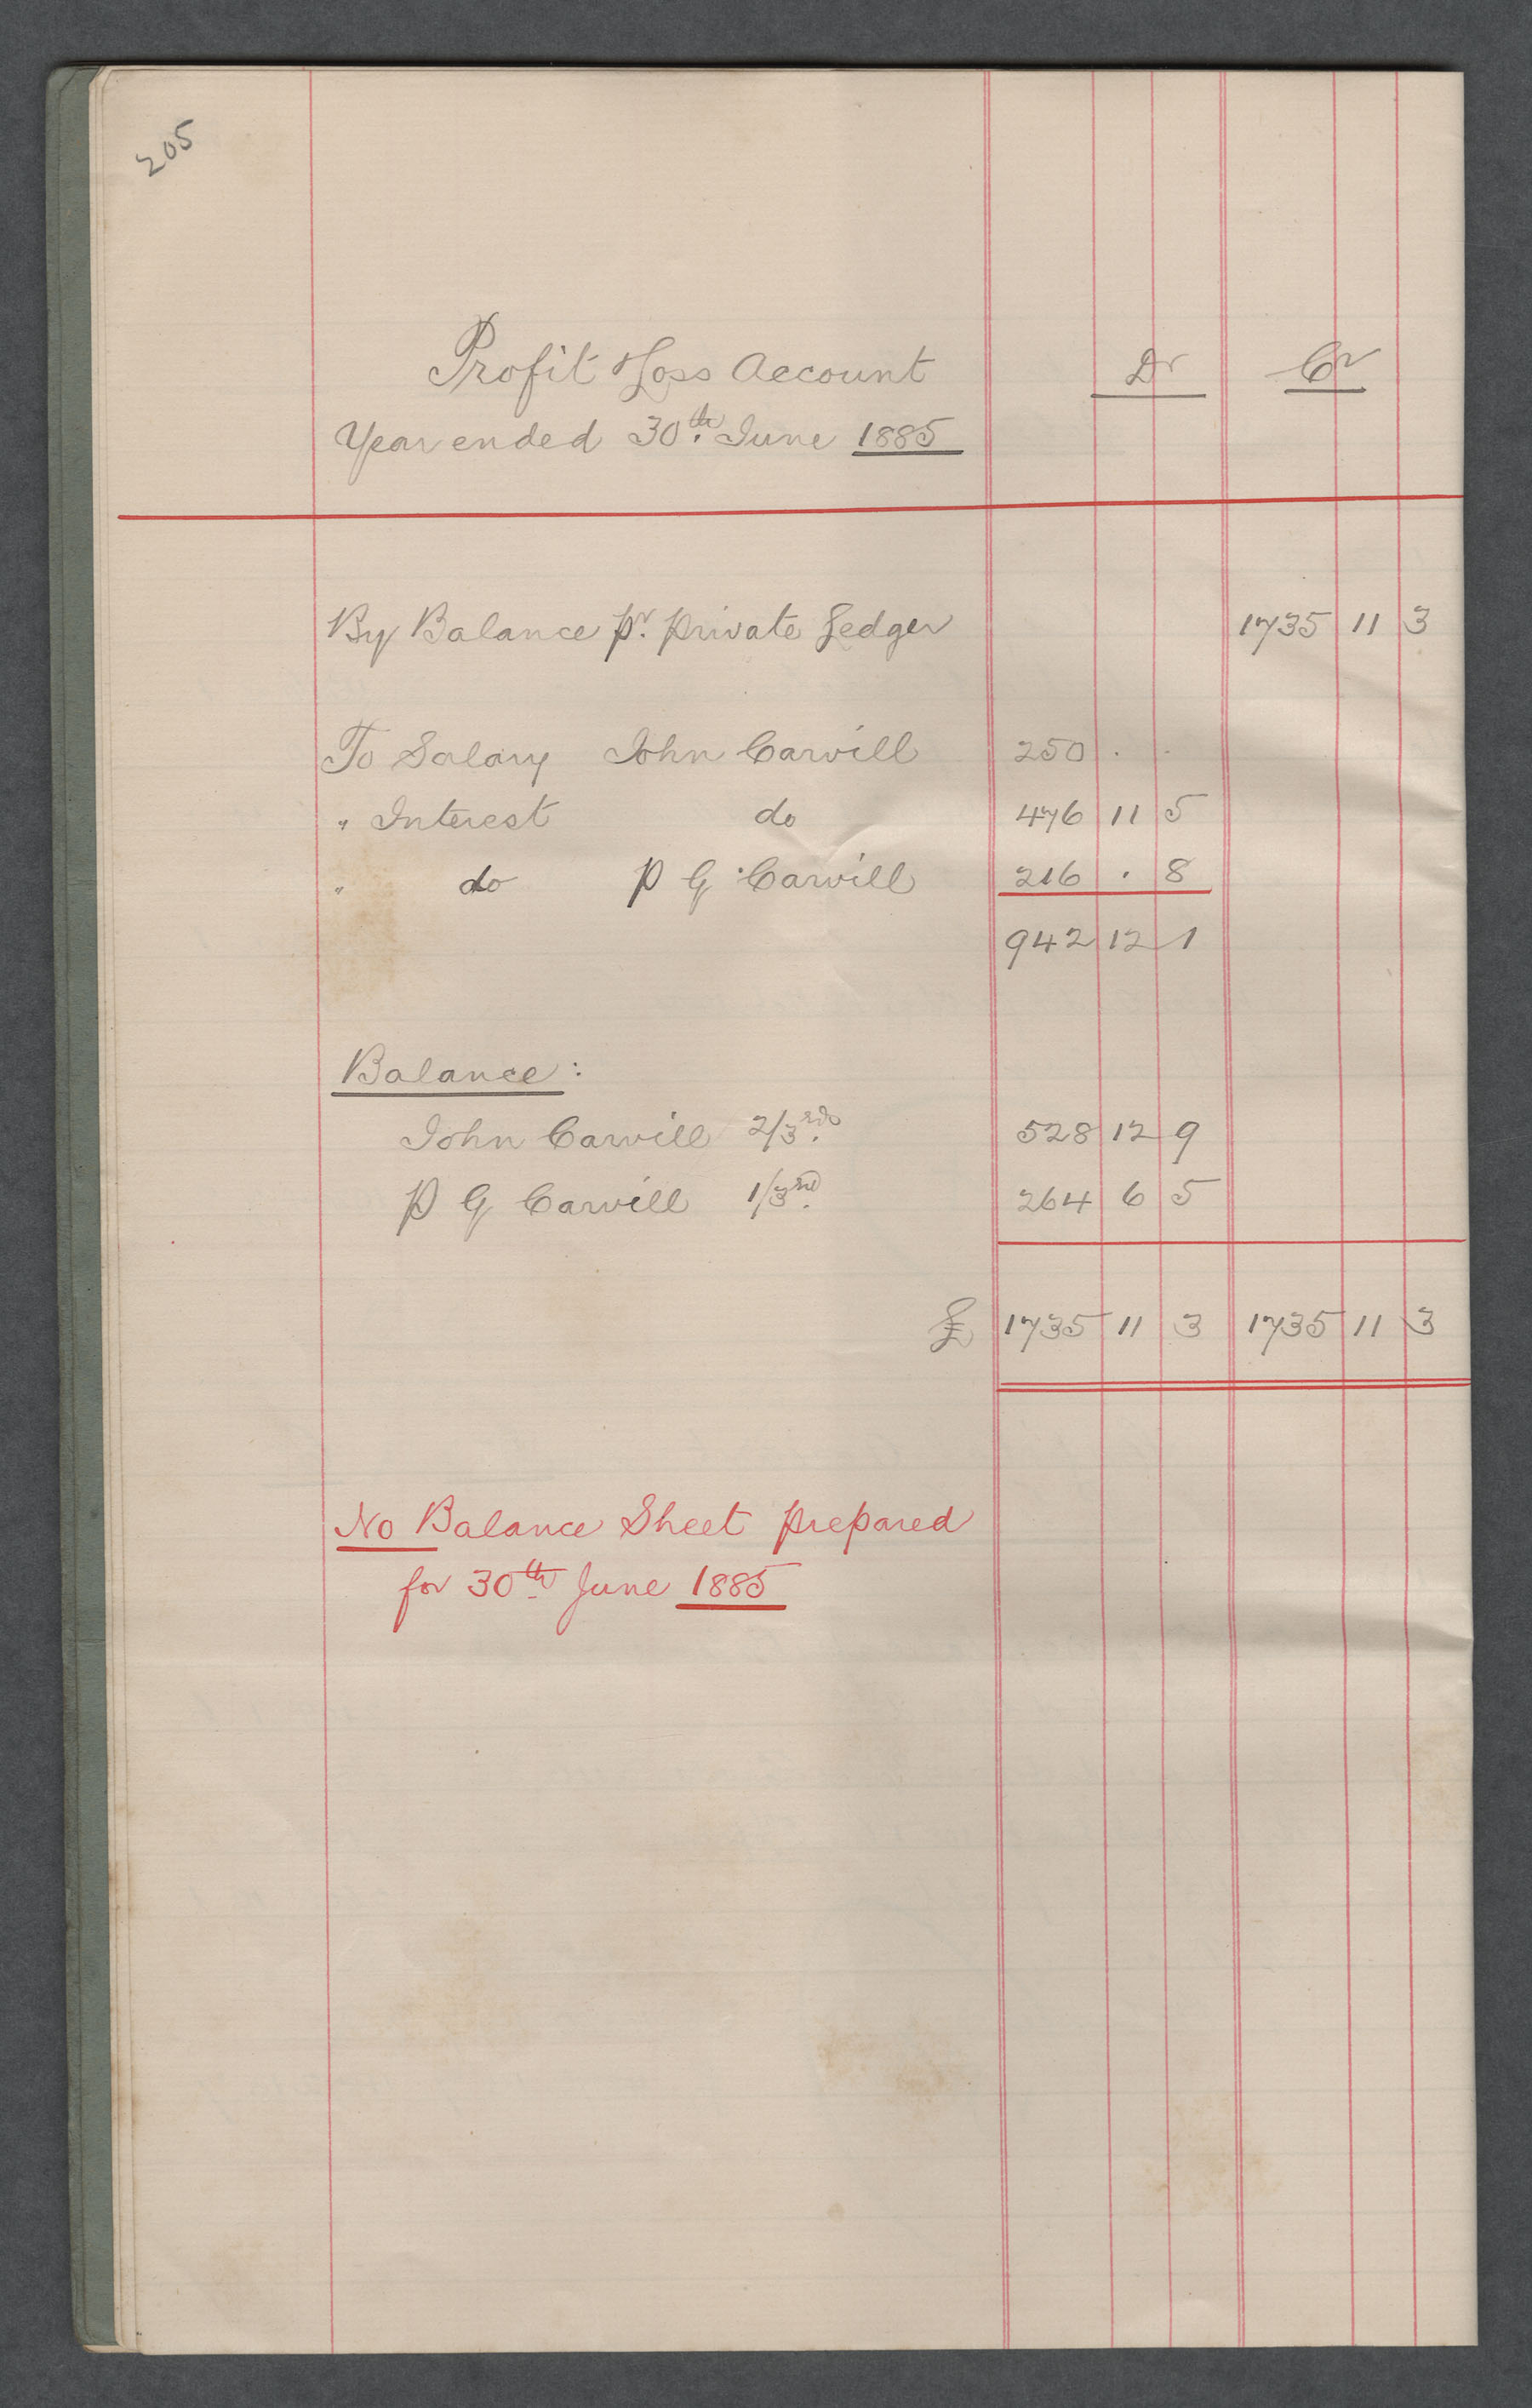 205
Profit & Loss Account Dr Cr
Year ended 30th. June 1885
By Balance pr. private Ledger 1735 11 3
To Salary John Carvill 250 . .
" Interest do 476 11 5
" do P G Carvill 216 . 8
942 12 1
Balance:
John Carvill 2/3rds. 528 12 9
P G Carvill 1/3rd. 264 6 5
£ 1735 11 3 1735 11 3
No Balance Sheet prepared
for 30th June 1885